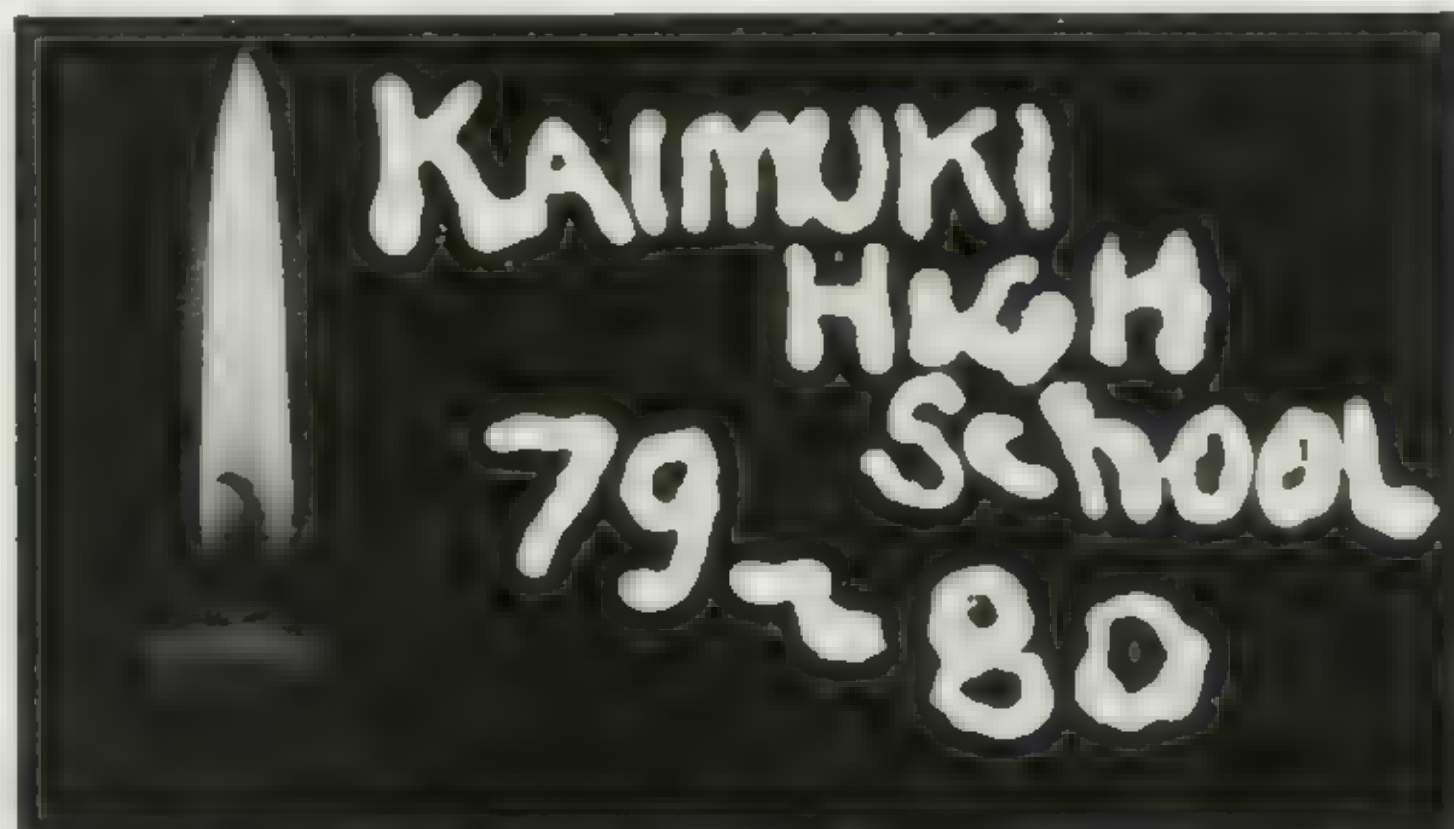 KAIMUKI
HIGH
SchOOL
79-80